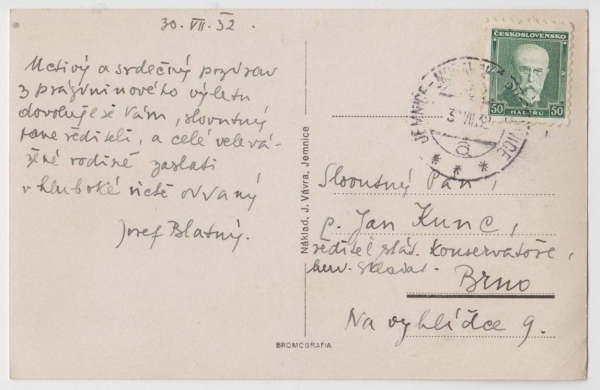 30. VII. 32
Uctivý a srdečný pozdrav
z prázdninového výletu
dovoluje si Vám, slovutný
pane řediteli, a celé velevá-
žené rodině zaslati
v hluboké úctě oddaný
Josef Blatný.
Náklad J. Vávra, Jemnice
BROMOGRAFIA
ČESKOSLOVENSKO
50 HALÉŘŮ 50
JEMNICE-MORAVSKÉ
31.VII.32
Slovutný Pán,
p. Jan Kunc,
ředitel stát. konservatoře,
hud. skladat.
Brno
Na vyhlídce 9.